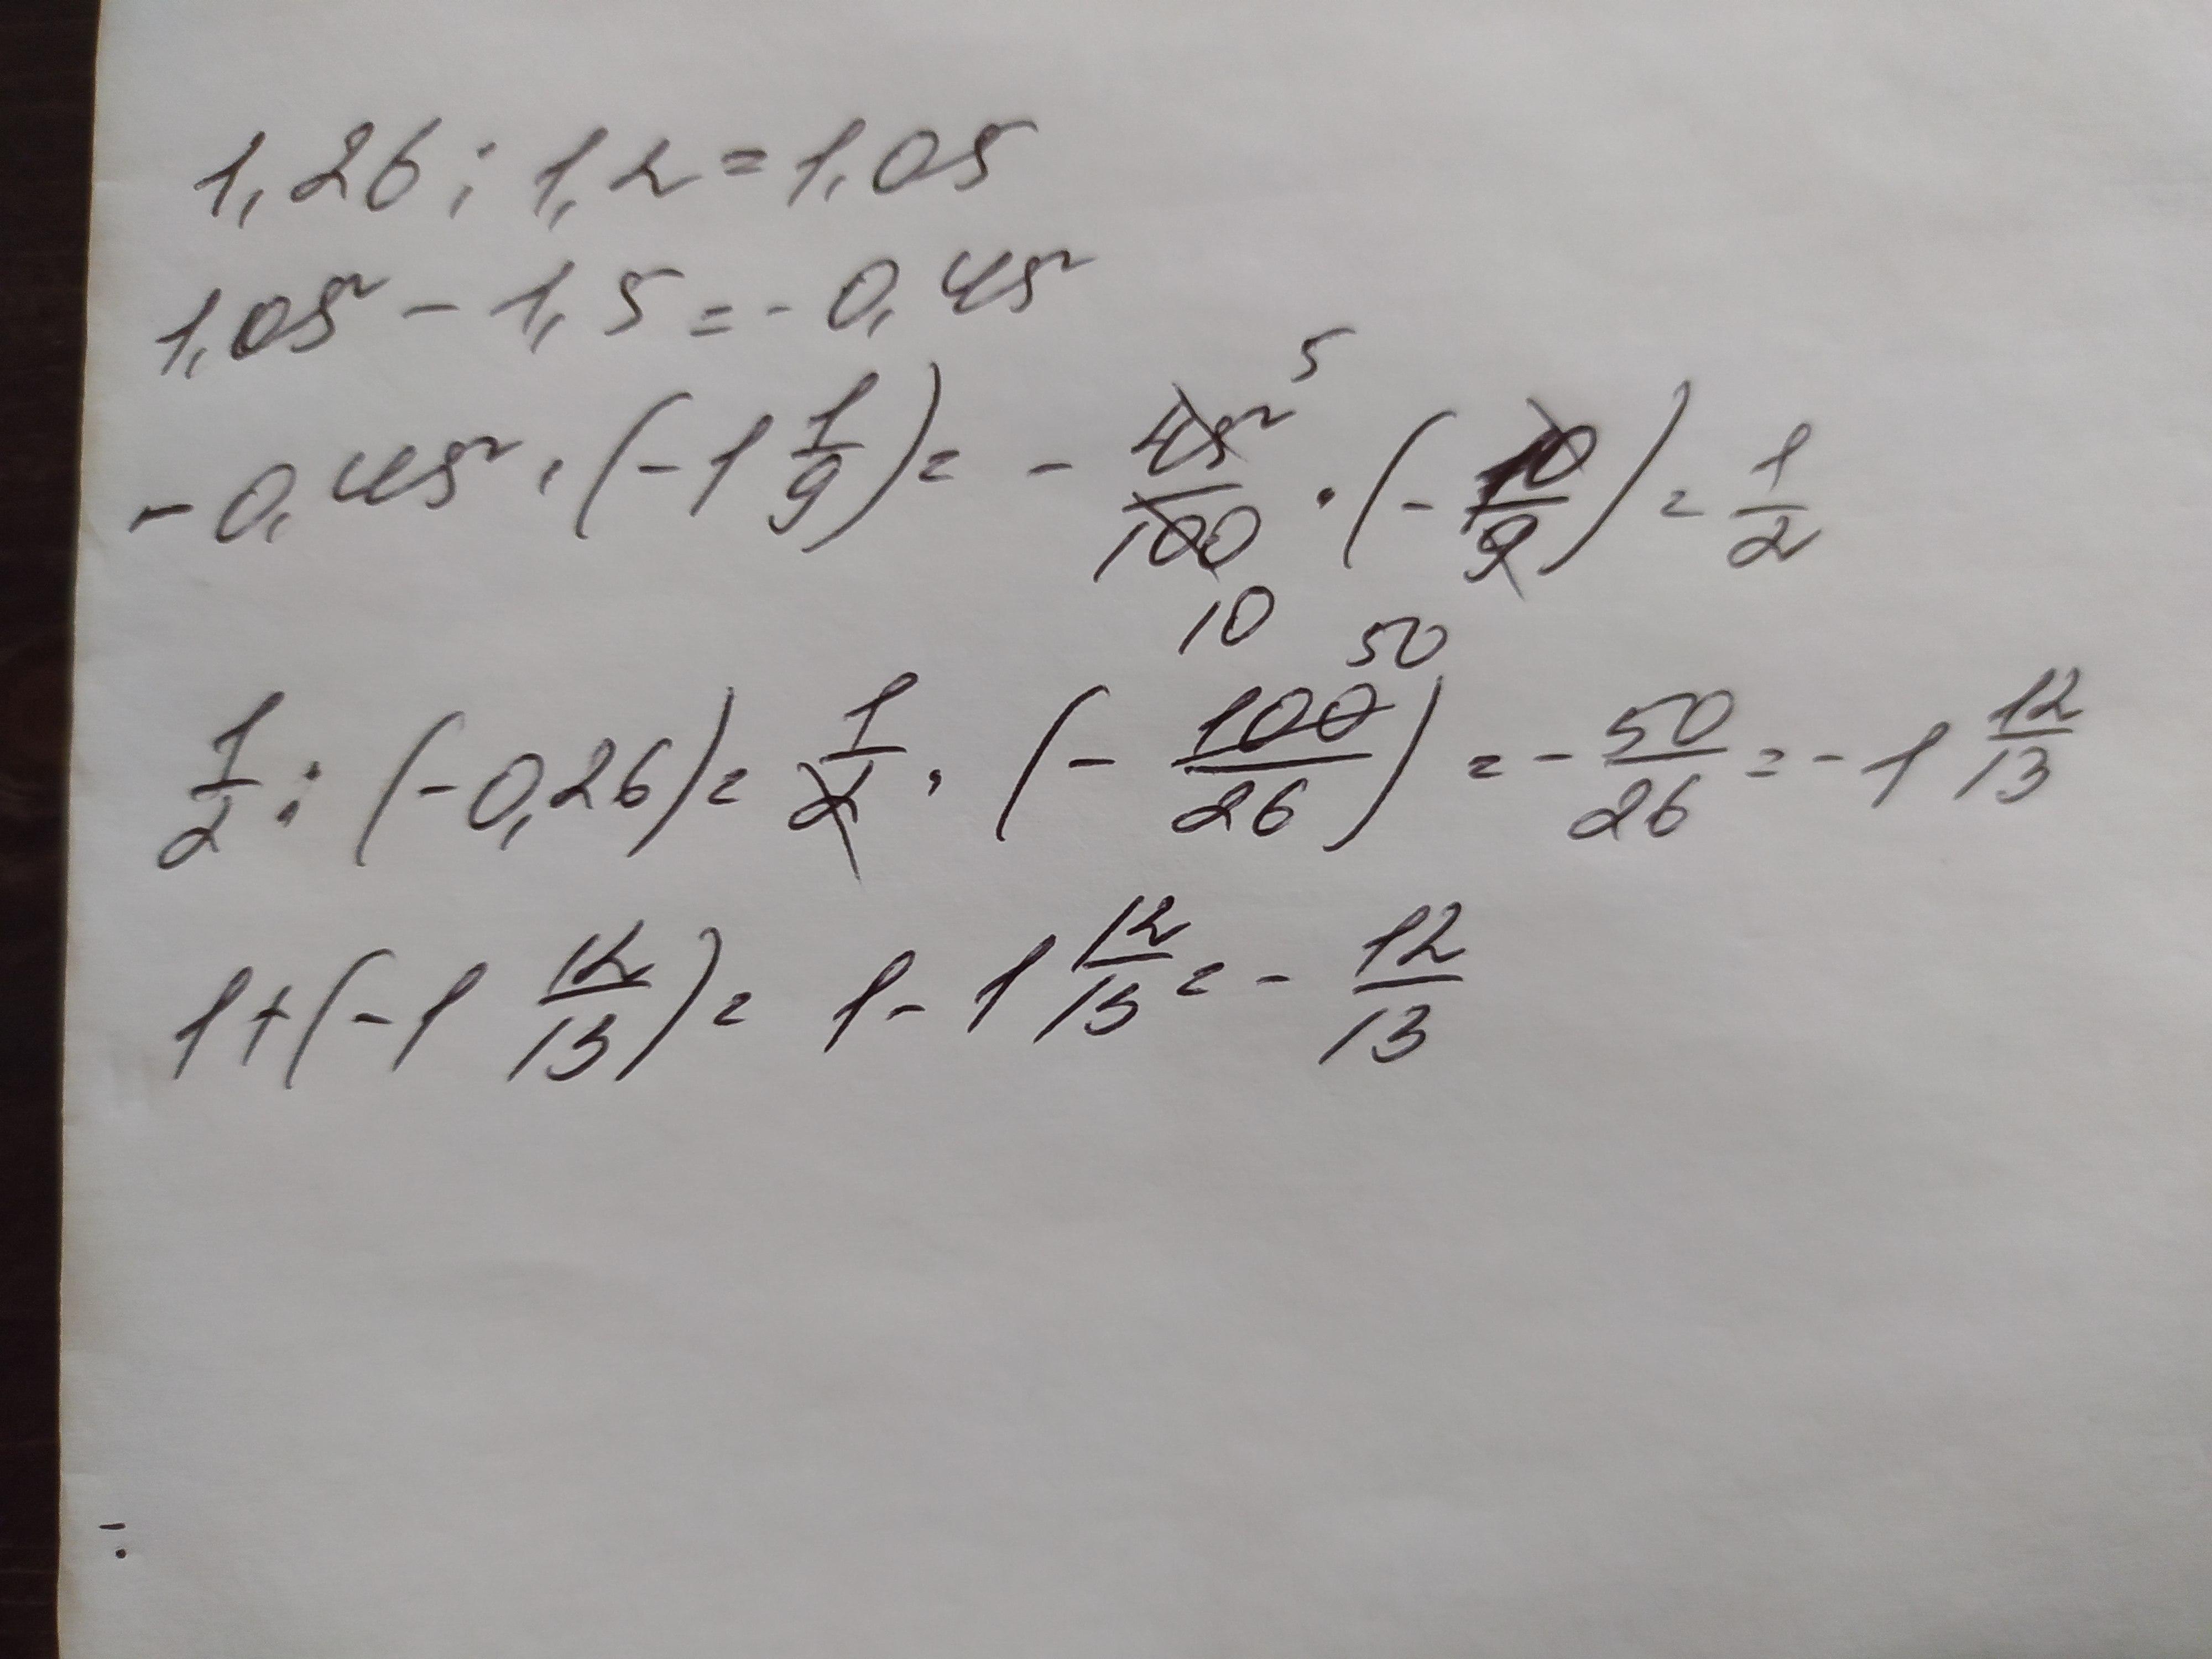 1,26 : 1,2 = 1,05
1,05 - 1,5 = - 0,45
- 0,45 · (- 1 1/9) = - 45/100 · (- 10/9) = 1/2
5
10
50
1/2 : (- 0,26) = 1/2 · (- 100/26) = - 50/26 = - 1 12/13
1 + (- 1 12/13) = 1 - 1 12/13 = - 12/13